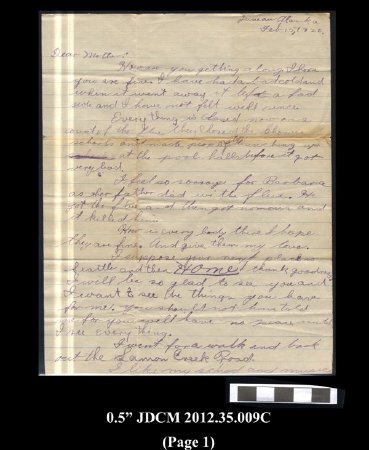 Juneau Alaska
Feb 17, 1920.
Dear Mother:
How are you getting along I hope
you are fine. I have had a bad cold and
when it went away it left a bad
and I have not felt well since.
Every thing is closed now on a
count of the flue they closed the
schools and made people
at the pool halls before it got
very bad.
I feel so sorry for Barbara
as her father died with the flue. He
got the flue and then got numonia and
it killed him.
How is every body there I hope
they are fine. And give them my love.
I suppose your next place is
Seattle and then Home thank goodness
I will be so glad to see you and
I want to see the things you have
for me. you should not have told
me for you will have no until
I see every thing.
I went for a walk and back
out the Salmon Creek Road.
I like my and music
0.5” JDCM 2012.35.009C
(Page 1)